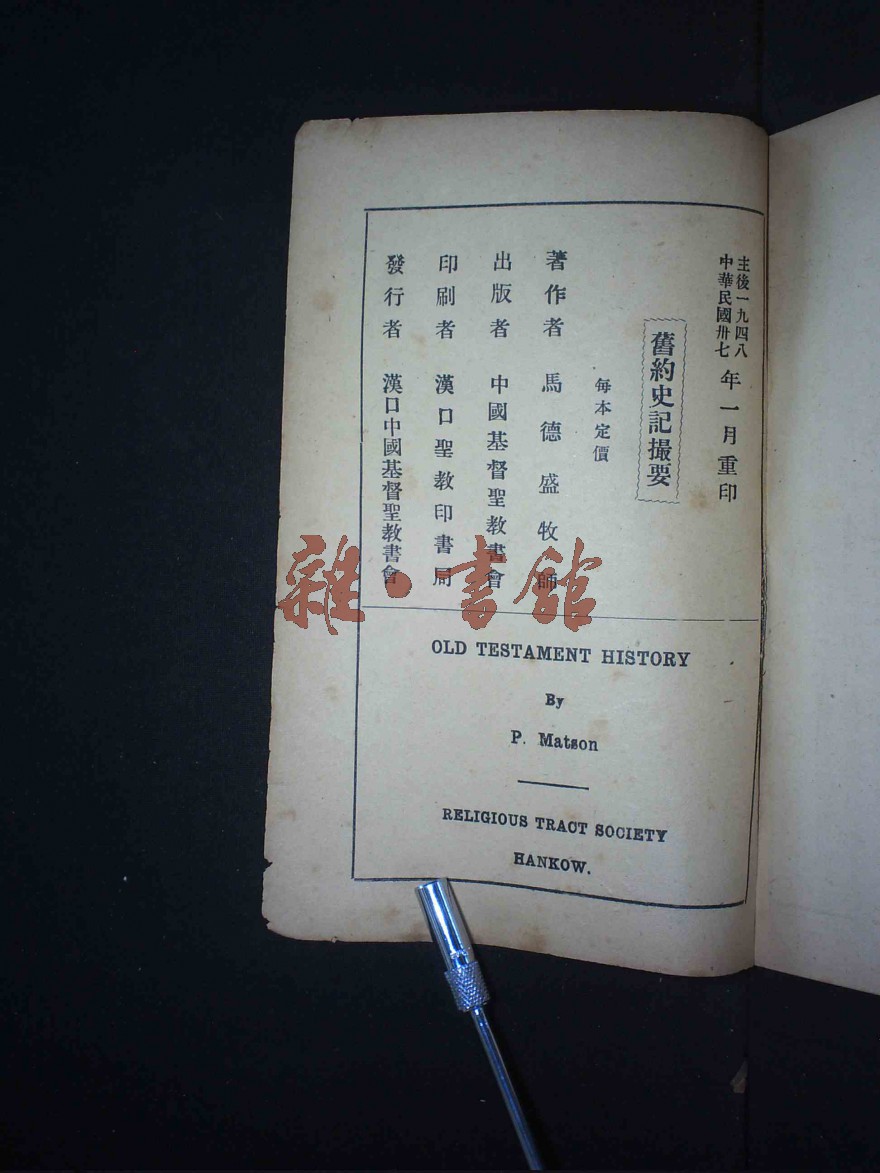 主後一九四八
中華民國卅七
年一月重印
舊約史記撮要
每本定價
著作者 馬德盛牧師
出版者 中國基督聖教書會
印刷者 漢口聖教印書局
發行者 漢口中國基督聖教書會
OLD TESTAMENT HISTORY
By
P. Matson
RELIGIOUS TRACT SOCIETY
HANKOW.
雜·書館